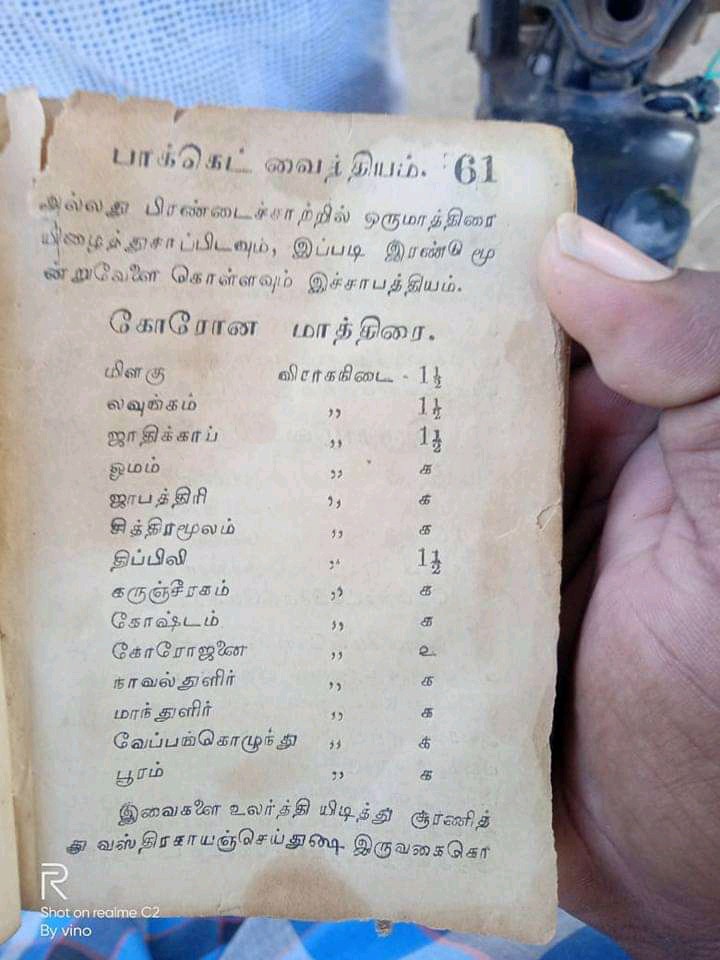 பாக்கெட் வைத்தியம். 61
அல்லது பிரண்டைச்சாற்றில் ஒருமாத்திரை
யிழைத்துசாப்பிடவும், இப்படி இரண்டு மூ
ன்றுவேளை கொள்ளவும் இச்சாபத்தியம்.
கோரோன மாத்திரை.
மிளகு விராகநிடை - 1½
லவுங்கம் ,, 1½
ஜாதிக்காய் ,, 1½
ஓமம் ,, க
ஜாபத்திரி ,, க
சித்திரமூலம் ,, க
திப்பிலி ,, 1½
கருஞ்சீரகம் ,, க
கோஷ்டம் ,, க
கோரோஜனை ,, உ
நாவல்துளிர் ,, க
மாந்துளிர் ,, க
வேப்பங்கொழுந்து ,, க
பூரம் ,, க
இவைகளை உலர்த்தி யிடித்து சூரணித்
து வஸ்திரகாயஞ்செய்துஷை இருவகைகொ
R
Shot on realme C2
By vino